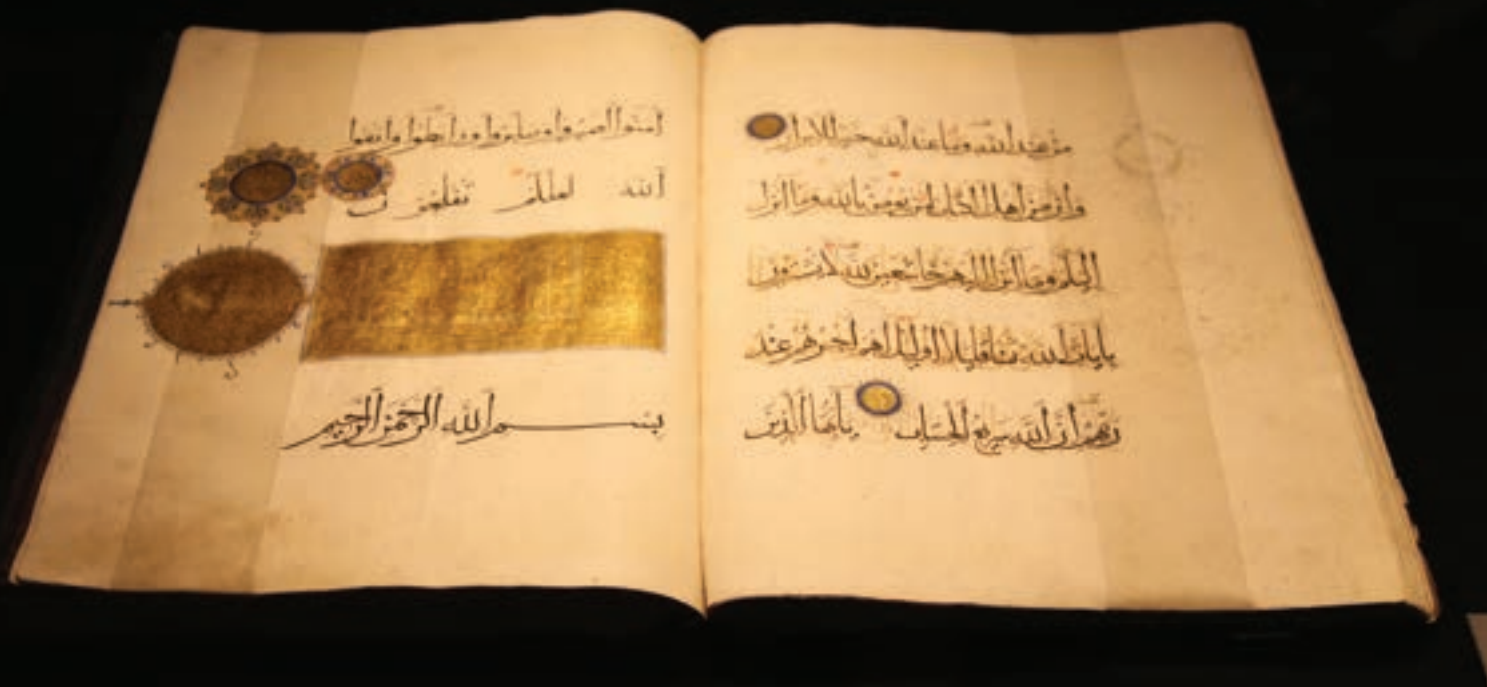 من عند الله وما عند الله خير للابرار
وان من اهل الكتب لمن يؤمن بالله وما انزل
اليكم وما انزل اليهم خاشعين لله لا يشترون
بايات الله ثمنا قليلا اولئك لهم اجرهم عند
ربهم ان الله سريع الحساب يايها الذين
آمنوا اصبروا وصابروا ورابطوا واتقوا
الله لعلكم تفلحون
بسم الله الرحمن الرحيم